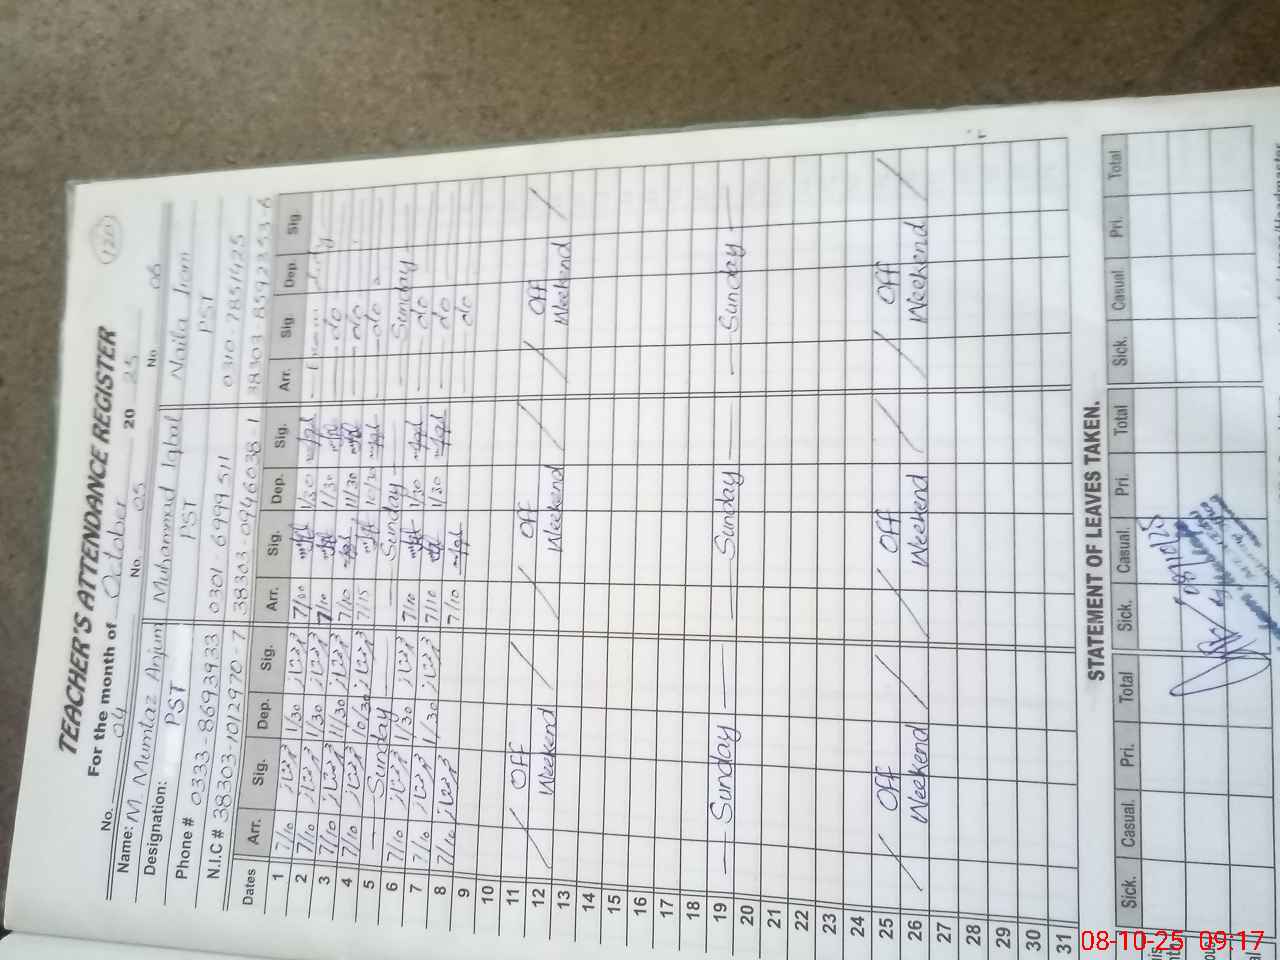 120
TEACHER'S ATTENDANCE REGISTER
For the month of October 20 25
No. 04 No. 05 No 06
Name: M. Mumtaz Anjum Muhammad Iqbal Naila
Designation: PST PST PST
Phone # 0333-8693933 0301-6999511 0310-7851425
N.I.C # 38303-1012970-7 38303-0946038-1 38303-8592353-6
Dates Arr. Sig. Dep. Sig. Arr. Sig. Dep. Sig. Arr. Sig Dep. Sig.
1 7/10 1/30 7/00 1/30
2 7/10 1/30 7/10 1/30 do
3 7/10 11/30 7/10 11/30 do
4 7/10 10/30 7/15 10/30 do
5 Sunday Sunday Sunday
6 7/10 1/30 7/10 1/30 do
7 7/10 1/30 7/10 1/30 do
8 7/10 7/10 do
9
10
11 Off Off Off
12 Weekend Weekend Weekend
13
14
15
16
17
18
19 Sunday Sunday Sunday
20
21
22
23
24
25 Off Off Off
26 Weekend Weekend Weekend
27
28
29
30
31
STATEMENT OF LEAVES TAKEN.
Sick. Casual. Pri. Total Sick. Casual. Pri. Total Sick. Casual. Pri. Total
08/10/25
08-10-25 09:17